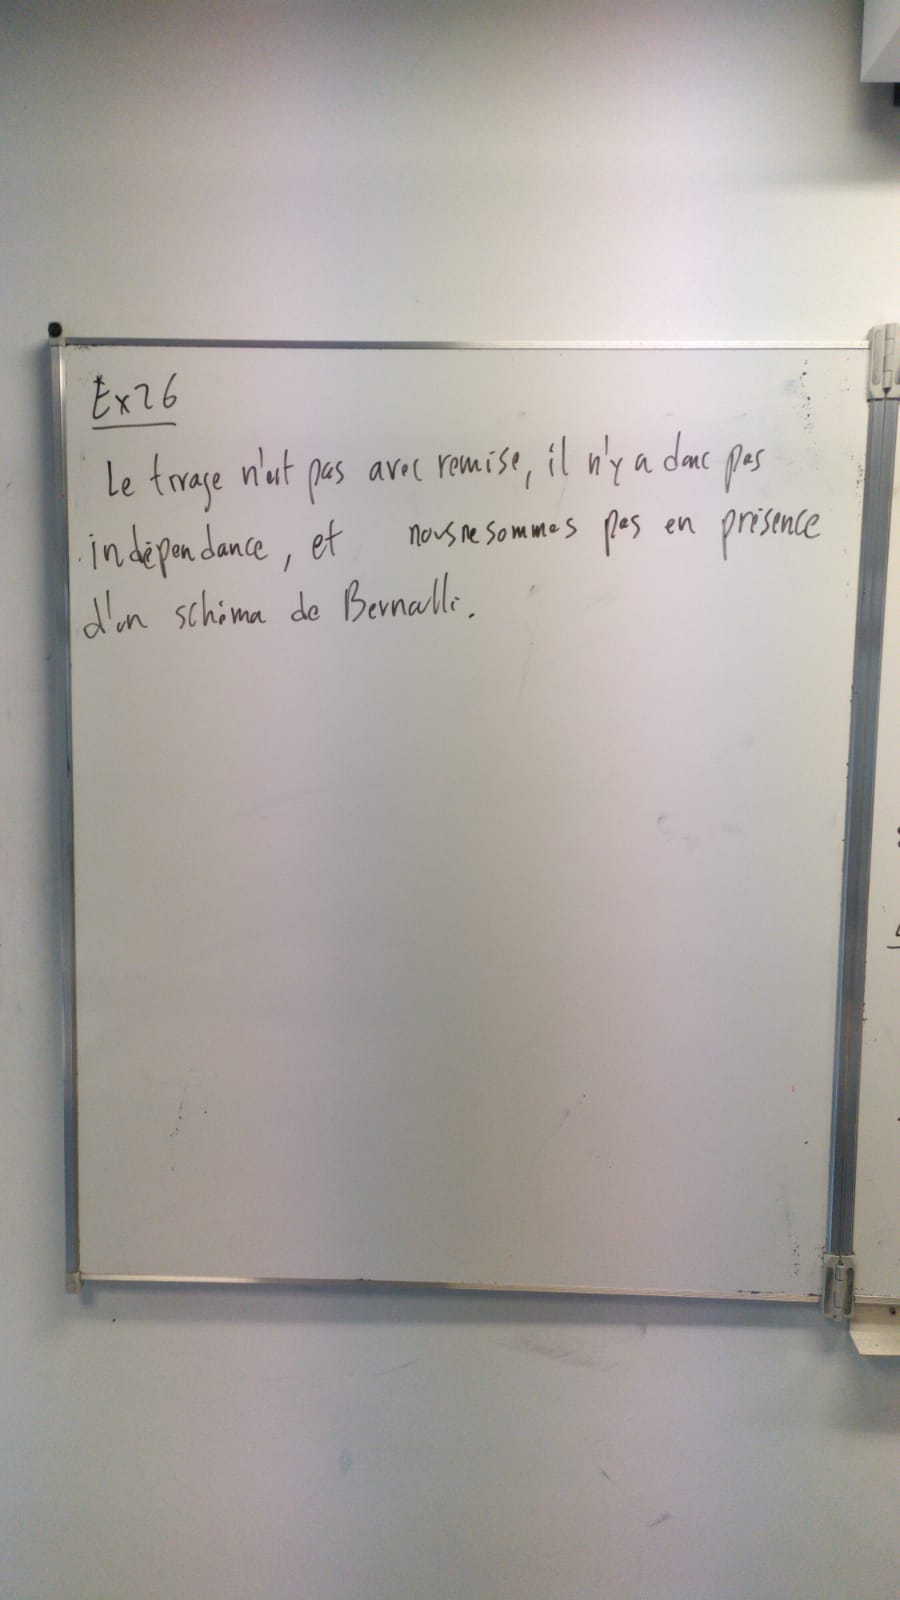 Ex26
Le tirage n'est pas avec remise, il n'y a donc pas
indépendance, et nous ne sommes pas en présence
d'un schéma de Bernoulli.